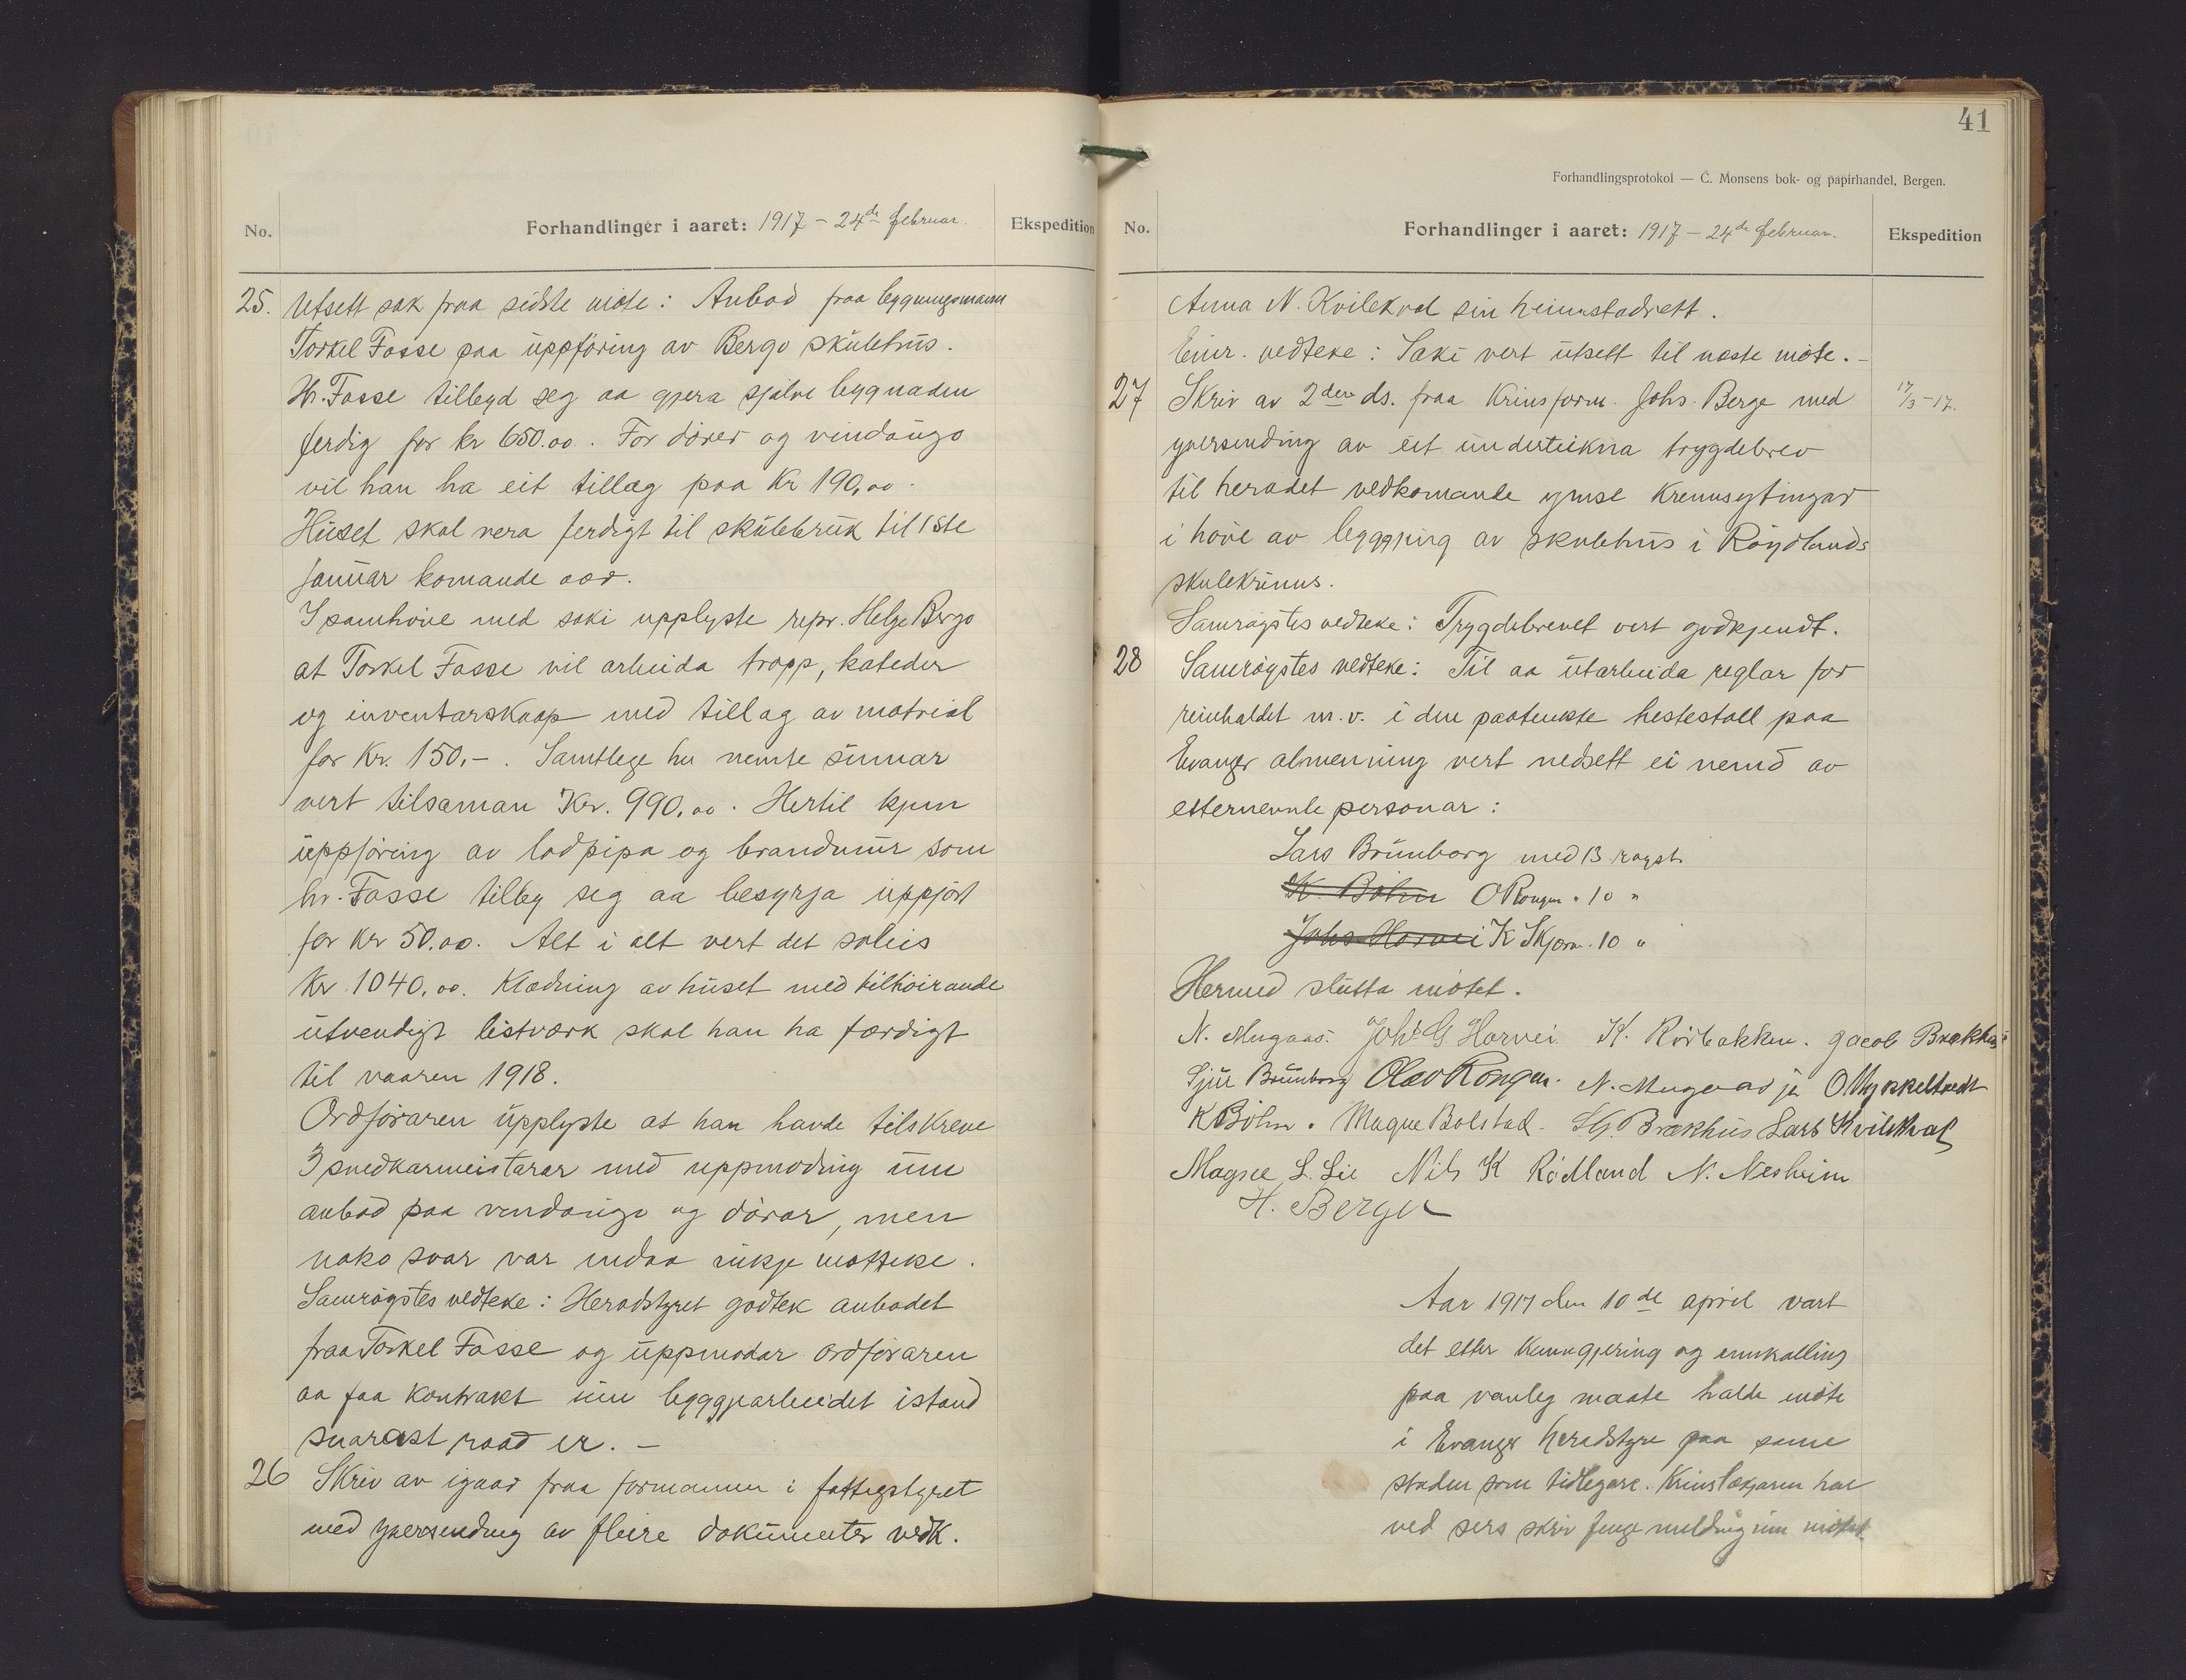 No.
Forhandlinger i aaret: 1917 – 24de februar.
Ekspedition
25. Utsett sak fraa sidste møte: Anbod fraa bygningsmann
Torkel Fosse paa uppføring av Bergo skulehus.
Hr. Fosse tilbyd seg aa gjera sjølve bygnaden
ferdig for kr 650.00. For dører og vindaugo
vil han ha eit tillæg paa Kr 190,00.
Huset skal vera ferdigt til skulebruk til 1ste
januar komande aar.
I samhøve med saki upplyste repr. Helge Bergo
at Torkel Fosse vil arbeida trapp, kateder
og inventarskaap med tillag av matrial
for Kr. 150,-. Samtlege hu nemte summar
vert tilsaman Kr. 990,00. Hertil kjem
uppføring av lodpipa og brandmur som
hr. Fosse tilby seg aa besyrja uppført
for Kr 50.00. Alt i alt vert det soleis
Kr 1040,00. Klædning av huset med tilhøirande
utvendigt listværk skal han ha færdigt
til vaaren 1918.
Ordføraren upplyste at han havde tilskreve
3 snedkarmeistarar med uppmoding um
anbod paa vendaugo og dørar, men
noko svar var endaa inkje motteke.
Samrøystes vedteke: Heradstyret godtek anbodet
fraa Torkel Fosse og uppmodar ordføraren
aa faa kontrakt um byggjearbeidet istand
snarast raad er. –
26 Skriv av igaar fraa formannen i fattigstyret
med yversending av fleire dokumenter vedk.
41
Forhandlingsprotokol — C. Monsens bok- og papirhandel, Bergen.
No.
Forhandlinger i aaret: 1917 – 24de februar.
Ekspedition
Anna N. Kvilekval sin heimstadrett.
Einr. vedteke: Saki vert utsett til næste møte. -
27 Skriv av 2den ds. fraa Krinsform. Johs. Berge med 17/3-17.
yversending av eit underteikna trygdebrev
til heradet vedkomande ymse krennsytingar
i høve av byggjing av skulehus i Røydlands
skulekrinns.
Samrøystes vedteke: Trygdebrevet vert godkjendt.
28 Samrøystes vedteke: Til aa utarbeida reglar for
reinhaldet m.v. i den paatenkte hestestall paa
Evanger almenning vert nedsett ei nemd av
etternevnte personar:
Lars Brunborg med 13 røyst.
K. Bøhn O Rongen " 10 "
Johs Horvei K Skjerv. 10 "
Hermed slutta møtet.
N. Mugaas. Johs G Horvei. K. Rørbakken. Jacob Brækhus
Sjur Brunborg Olav Rongen. N. Mugaas jr O Mykkeltvedt
K Bøhn. Magne Bolstad. St. Brækhus Lars Kvilekval
Magne L. Lie Nils K Rødland N. Nesheim
H. Berge
Aar 1917 den 10de april vart
det etter kunngjering og innkalling
paa vanleg maate halde møte
i Evanger heradstyre paa same
staden som tidlegare. Krinslækjaren har
ved sers skriv fenge melding um møtet